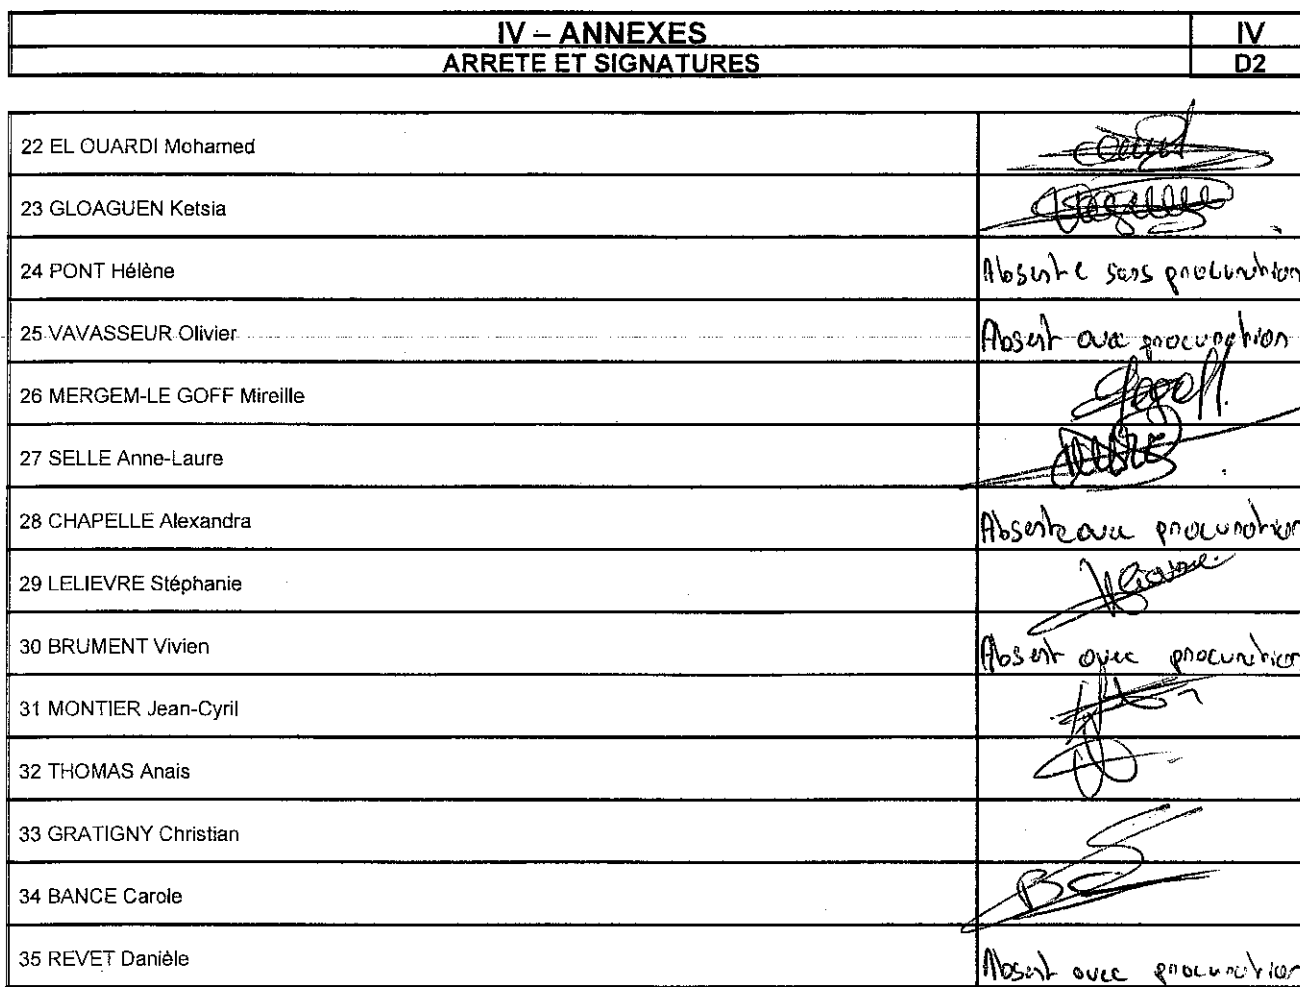 IV – ANNEXES IV
ARRETE ET SIGNATURES D2
22 EL OUARDI Mohamed
23 GLOAGUEN Ketsia
24 PONT Hélène Absente sans procuration
25 VAVASSEUR Olivier Absent avec procuration
26 MERGEM-LE GOFF Mireille
27 SELLE Anne-Laure
28 CHAPELLE Alexandra Absente avec procuration
29 LELIEVRE Stéphanie
30 BRUMENT Vivien Absent avec procuration
31 MONTIER Jean-Cyril
32 THOMAS Anais
33 GRATIGNY Christian
34 BANCE Carole
35 REVET Danièle Absent avec procuration